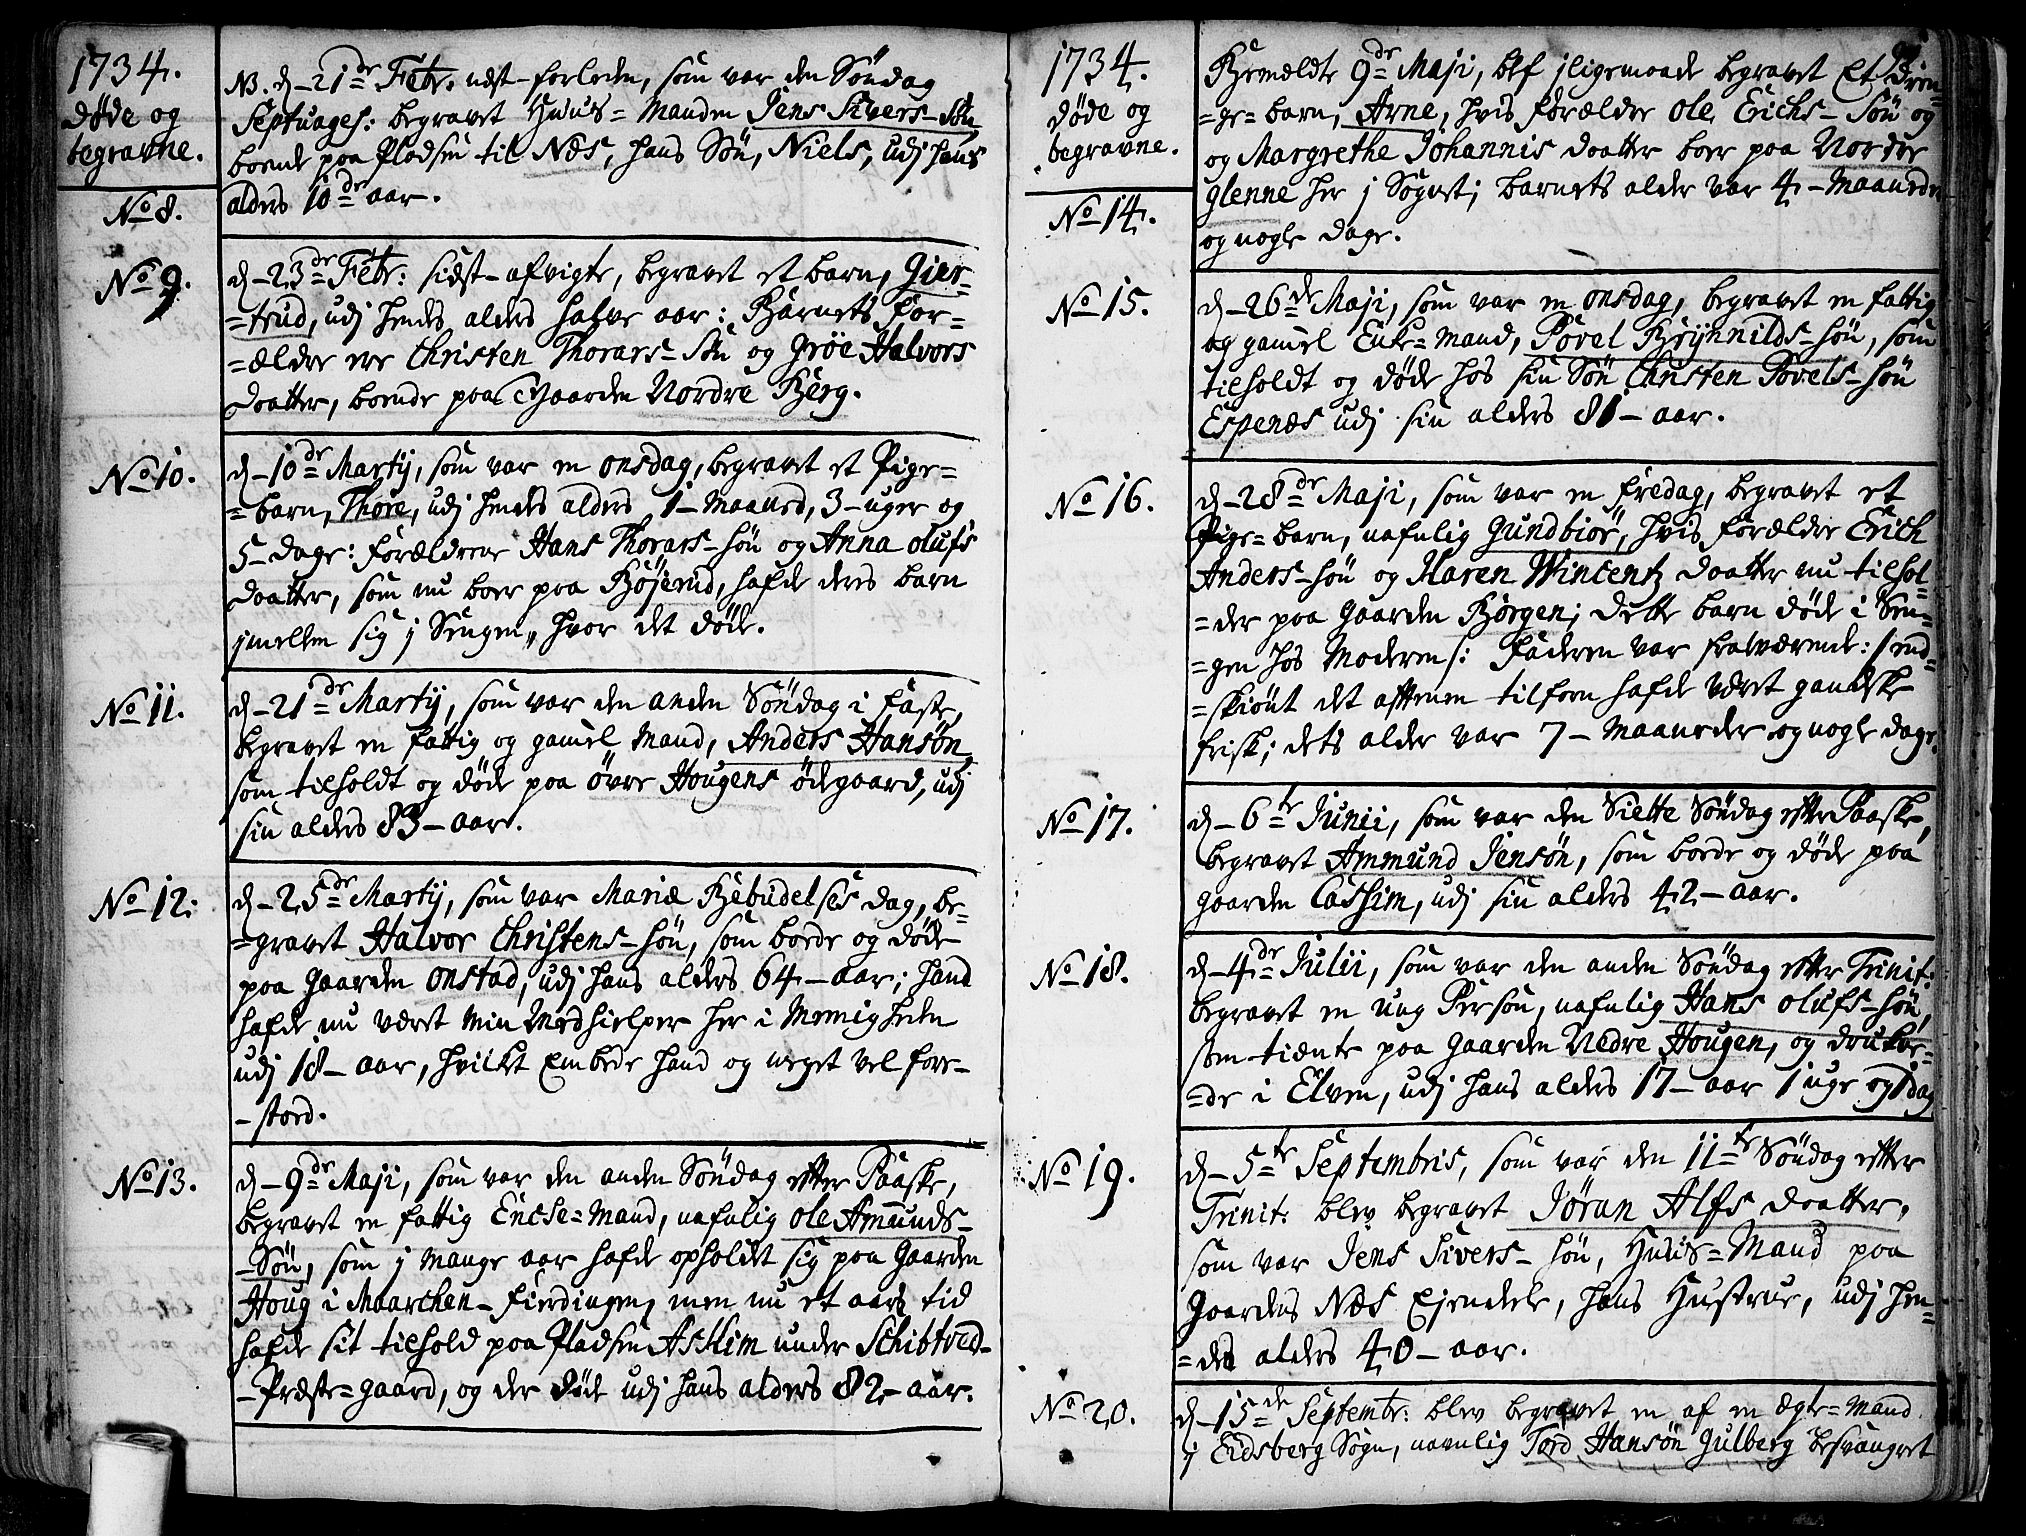 1734.
døde og
begravne.
No 8.
NB. d. 21de Febr. næst-forleden, som var den Söndag
Septuages: begravet Huus=Manden Jens Sivers-Sön
boende paa Pladsen til Næs, hans Sön, Niels, udj hans
alders 10de aar.
No 9.
d. 23de Febr: sidst-afvigte, begravet et barn, Gier-
=trud, udj hendes alders halve aar: Barnets For-
=ældre ere Christen Thorars-Sön og Gröe Halvors
Daatter, boende paa Gaarden Nordre Berg.
No 10.
d. 10de Martij, som var en onsdag, begravet et Pige=
=barn, Thore, udj hendes alders 1-Maaned, 3-uger og
5-dage: forældrene Hans Thorars-sön og Anna olufs
Daatter, som nu boer paa Böjerud, hafde deres barn
jmellem sig j Sengen, hvor det döde.
No 11.
d. 21de Martij, som var den anden Söndag i faste,
begravet en fattig og gamel Mand, Anders Hansön,
som tilholdt og döde paa övre Hougens ödegaard, udj
sin alders 83-aar.
No 12.
d. 25de Martij, som var Mariæ Bebudelses dag, be-
=gravet Halvor Christens-sön, som boede og döde
paa Gaarden onstad, udj hans alders 64-aar; hand
hafde nu været min Medhielper her i Menigheden
udj 18-aar, hvilket Embede hand og meget vel fore-
-stod.
No 13.
d. 9de Maji, som var den anden Söndag efter Paaske,
begravet en fattig Encke=Mand, nafnlig ole Amunds-
-Sön, som j mange aar hafde opholdet sig paa Gaarden
Houg i Maarchen-fierdingen, men nu et aars tid
hafde sit tilhold paa Pladsen Askim under Schibtved-
-Præste=gaard, og der döde udj hans alders 82-aar.
1734.
døde og
begravne.
No 14.
Bemældte 9de Maji, blef jligemaade begravet Et Dren-
=ge=barn, Arne, hvis forældre ole Erichs-Sön og
og Margrethe Johannis Daatter boer paa Nordre
glenne her j Sognet; barnets alder var 4-Maaneder
og nogle dage.
No 15.
d. 26de Maji, som var en onsdag, begravet en fattig
og gamel Enke=Mand, Povel Brynnilds-sön, som
tilholdt og döde hos sin Sön Christen Povels-sön
Espenæs udj sin alders 81-aar.
No 16.
d. 28de Maji, som var en fredag, begravet et
Pige=barn, nafnlig Gundbiör, hvis forældre Erich
Anders-sön og Maren Wincentz Daatter nu tilhol-
=der paa Gaarden Börgen; dette barn döde i Sen-
=gen hos Moderen /: Faderen var fraværende :/ end-
=skiönt det aftenen tilforn hafde været gandske
frisk; dets alder var 7-Maaneder og nogle dage.
No 17.
d. 6te Junii, som var den Siette Söndag efter Paaske,
begravet Ammund Jensön, som boede og döde paa
gaarden Casshim, udj sin alders 42-aar.
No 18.
d. 4de Julii, som var den anden Söndag efter Trinit:
begravet en ung Person, nafnlig Hans olufs-sön,
som tiente paa Gaarden Nedre Hougen, og drukne-
=de i Elven, udj hans alders 17-aar 1 uge og 1 dag
No 19.
d. 5te Septembris, som var den 11te Söndag efter
Trinit: blev begravet Jöran Alfs Daatter,
som var Jens Sivers-sön, Huus=Mand paa
Gaardens Næs Ejendele, hans Hustrue, udj hen-
=des alders 40-aar.
No 20.
d. 15de Septembr: blev begravet en af en ægte=Mand
j Eidsberg Sogn, navnlig Tord Hansön Gulberg besvangret